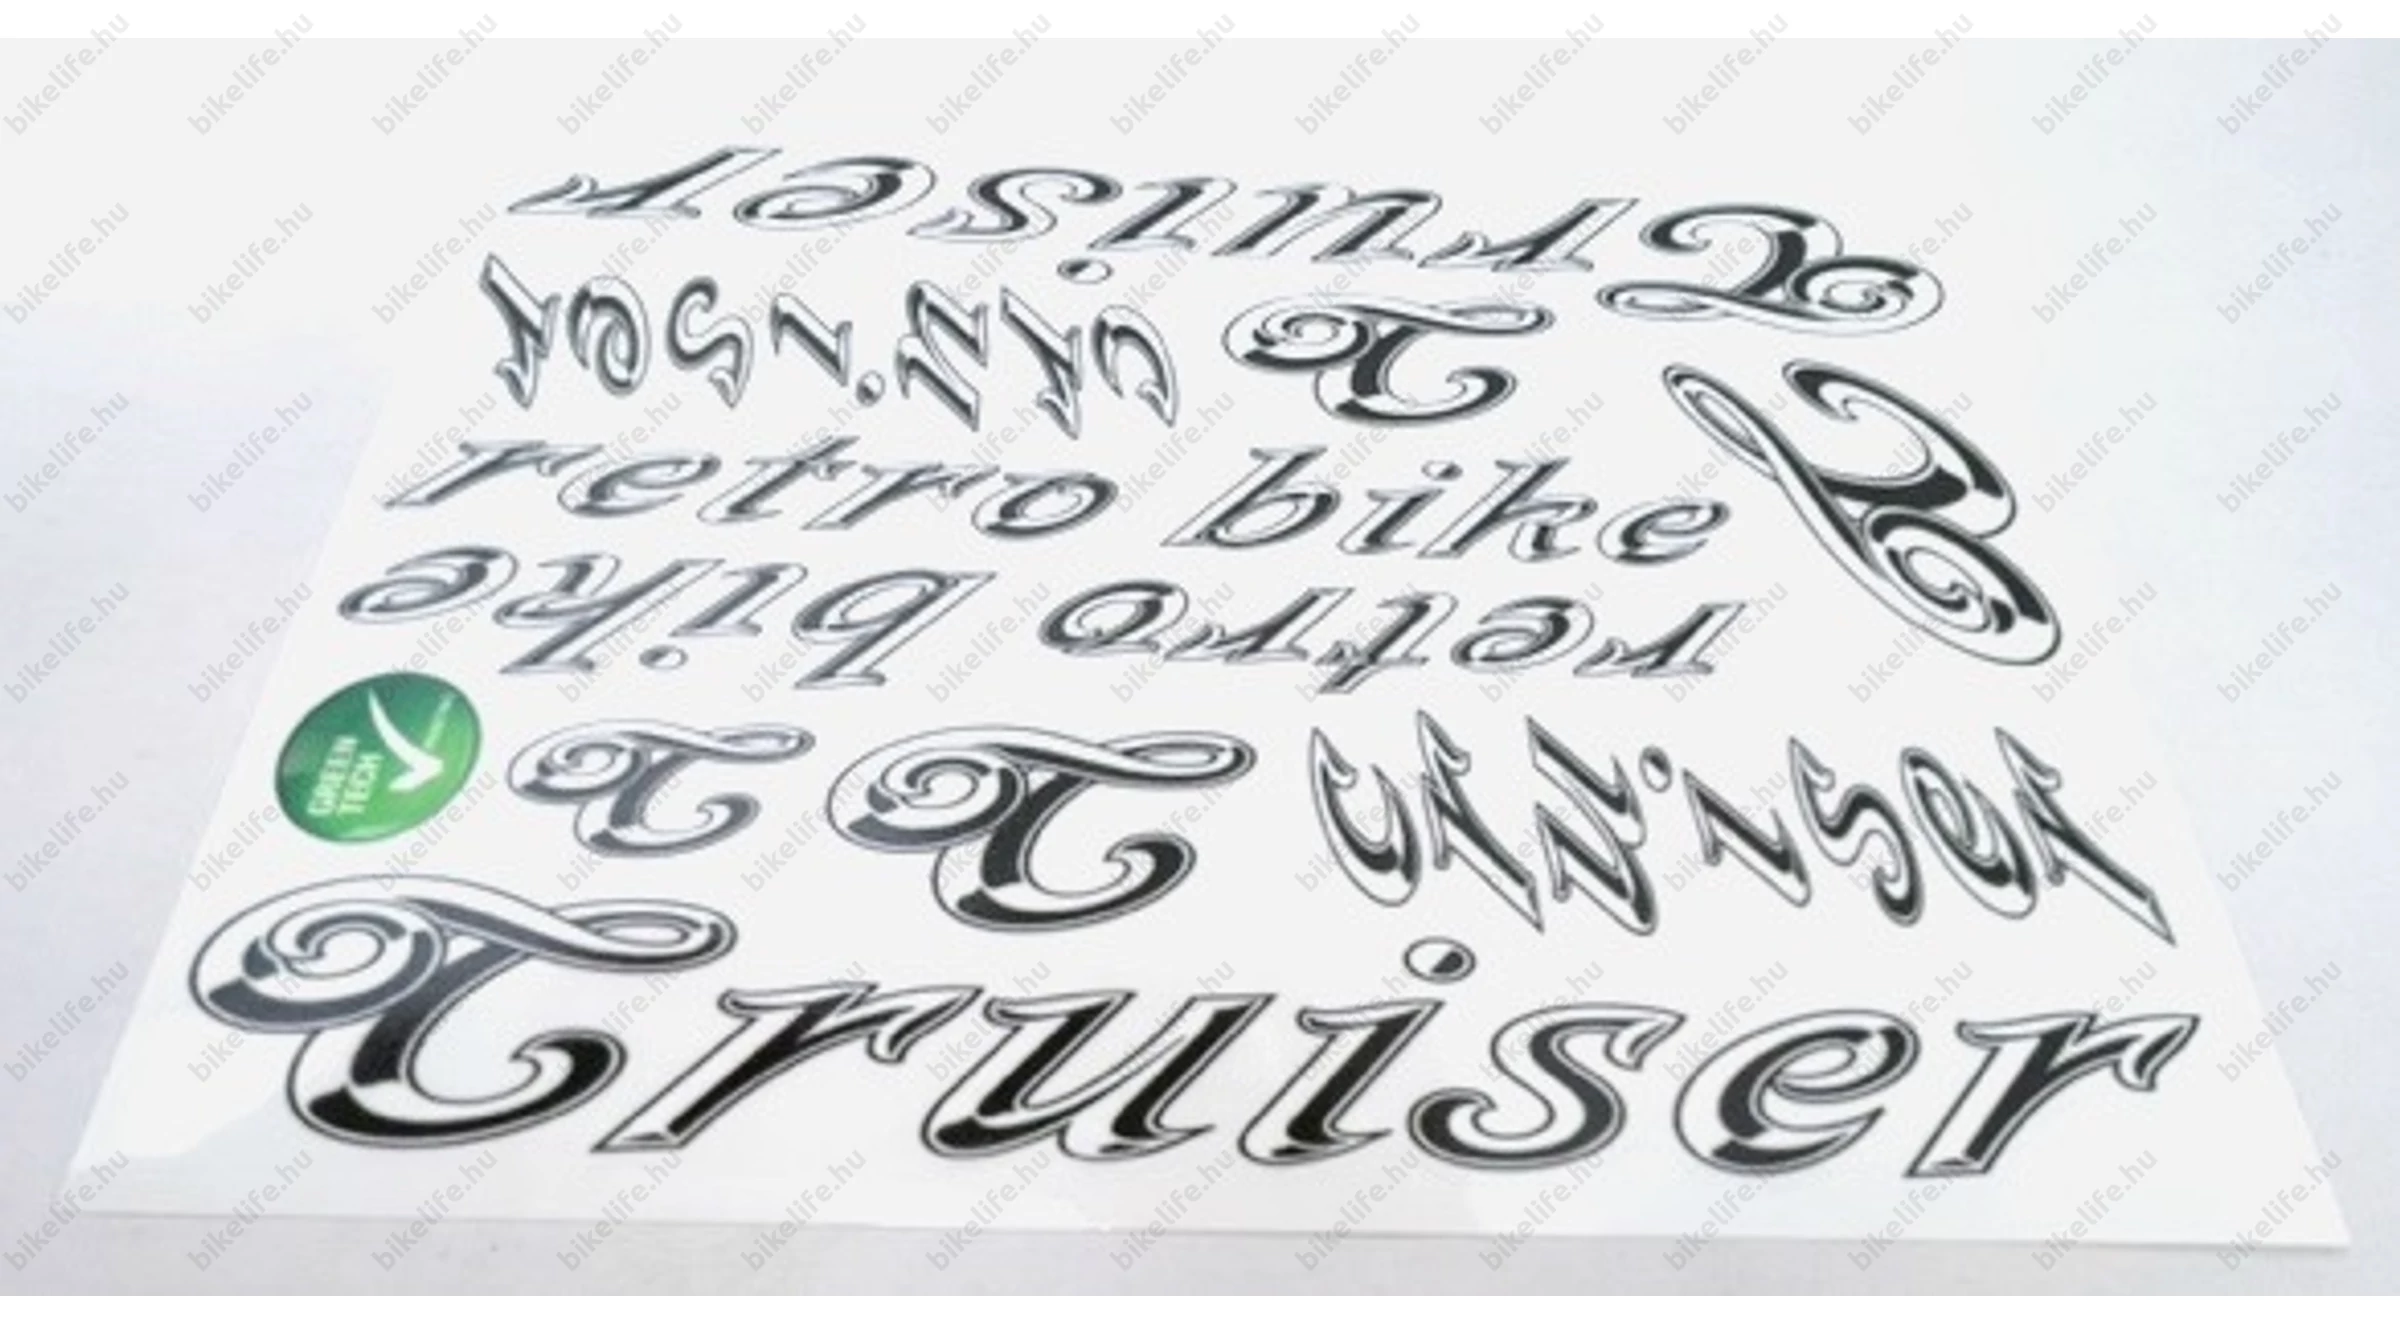 Cruiser
cruiser C
retro bike C
retro bike
GREEN
TECH
C C cruiser
Cruiser
bikelife.hu